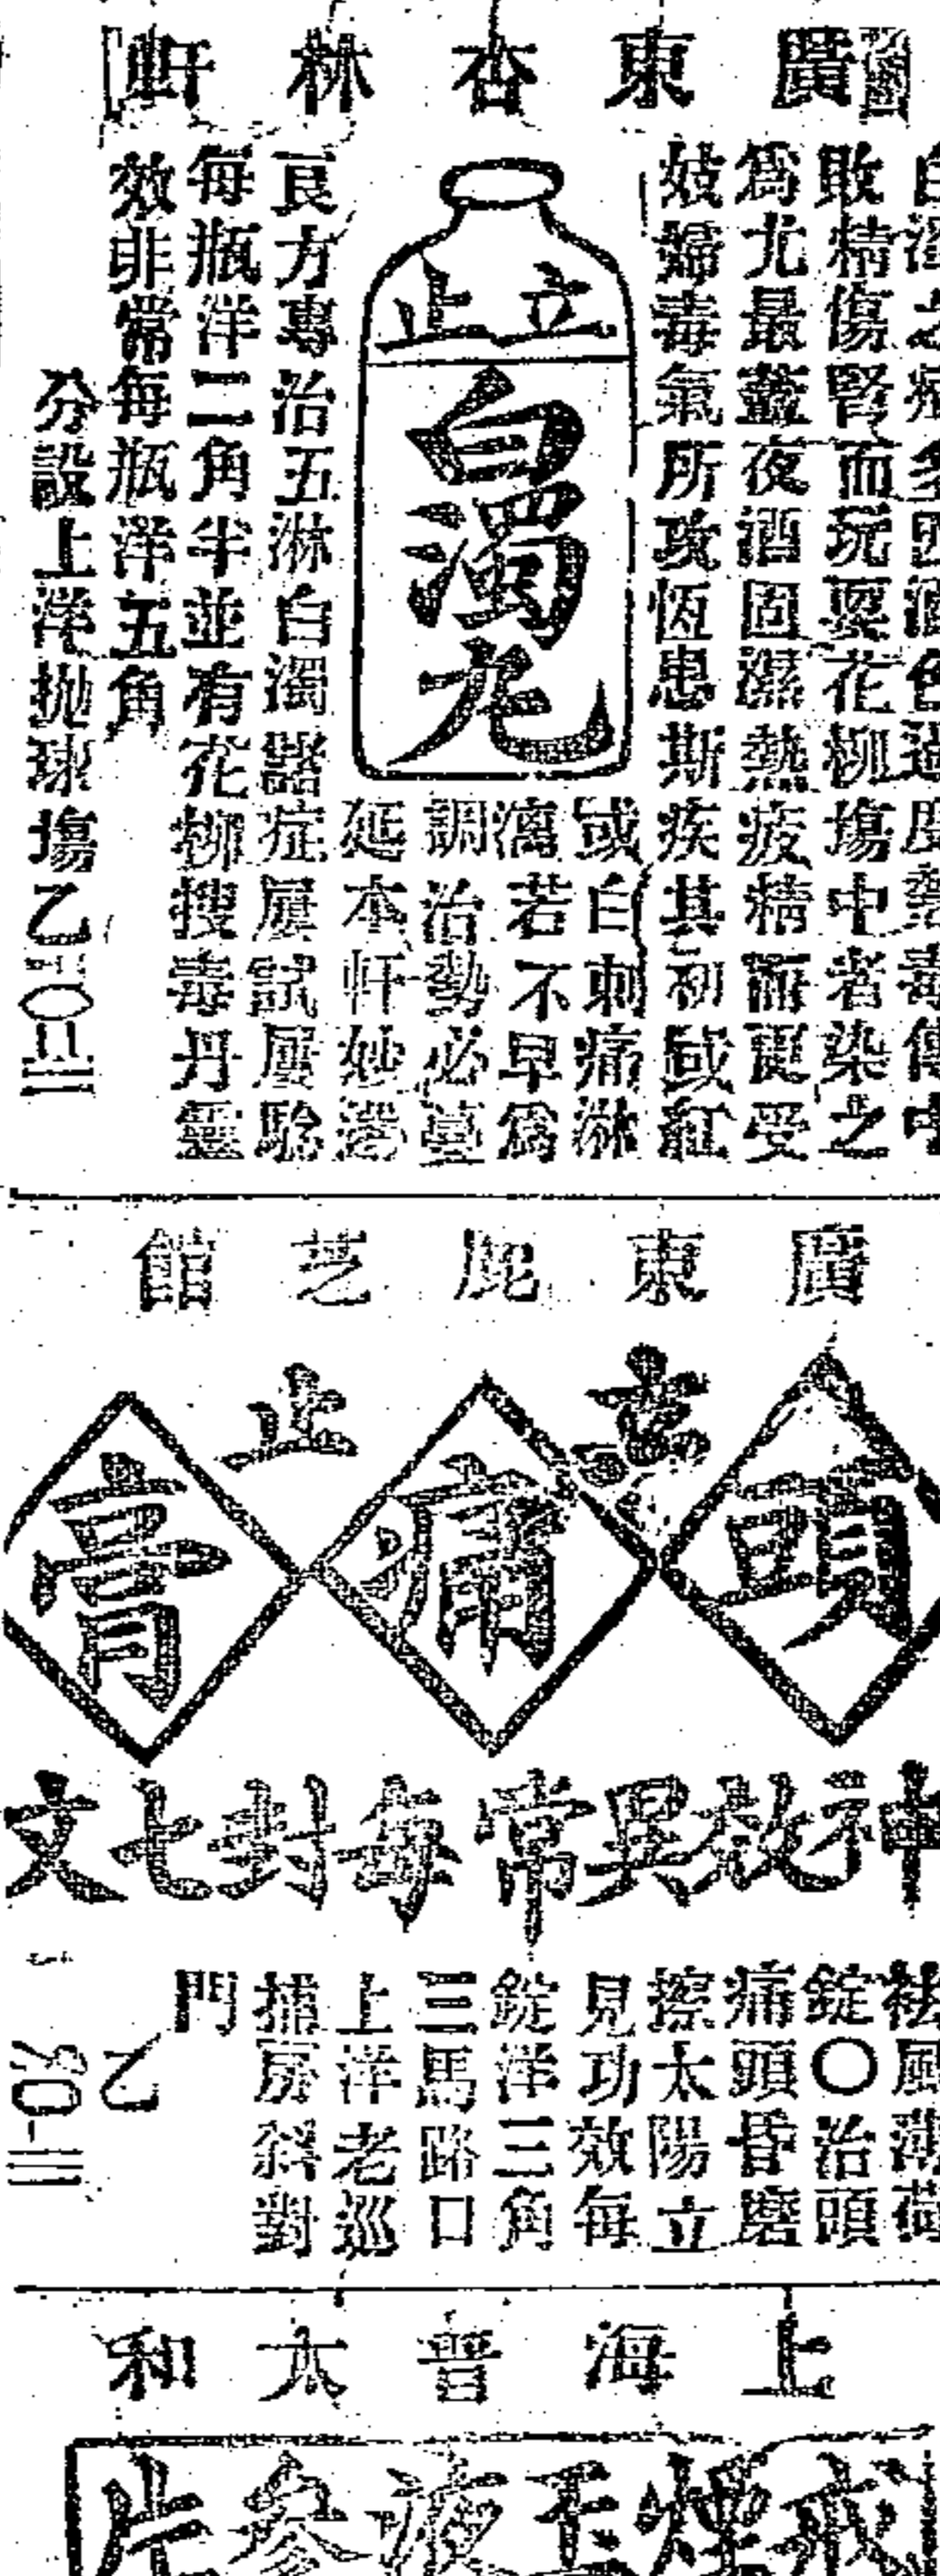 廣東杏林軒
白濁之症多因酒色過度熱毒傳中
敗精傷腎而玩耍花柳塲中者染之
爲尤最蓋夜酒固濕熱疲精而更受
妓婦毒氣所攻恆患斯疾其初或紅
或白刺痛淋
漓若不早爲
調治勢必蔓
延本軒妙選
立止
白濁丸
良方專治五淋白濁諸症屢試屢騐
每瓶洋二角半並有花柳搜毒丹靈
效非常每瓶洋五角
分設上洋抛球塲乙
廣東鹿芝館
立止
頭痛膏
神效異常每封七文
祛風薄荷
錠〇治頭
痛頭昏磨
擦太陽立
見功效每
錠洋三角
三馬路口
上洋老巡
捕房斜對
門
乙
上海普太和
戒煙玉液參片